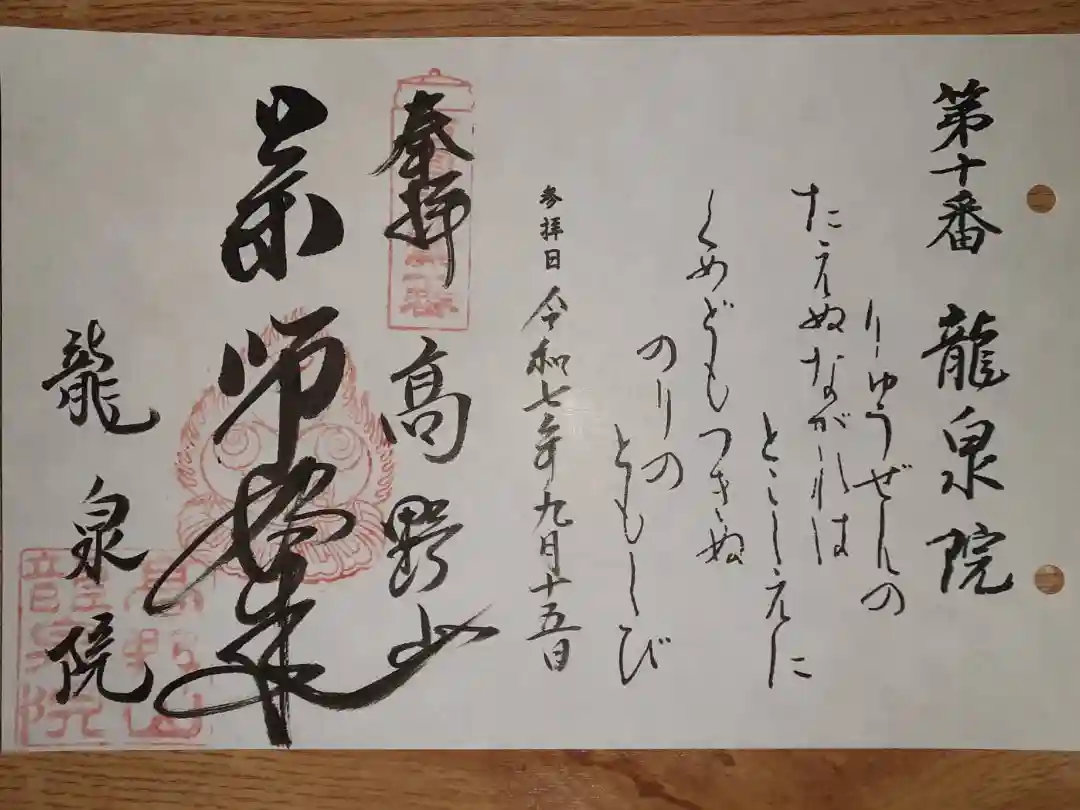 第十番 龍泉院
りゅうぜんの
たえぬながれは
とこしえに
くめどもつきぬ
のりの
ともしび
参拝日 令和七年九月十五日
奉拝 高野山
薬師如来
龍泉院
高野山
龍泉院